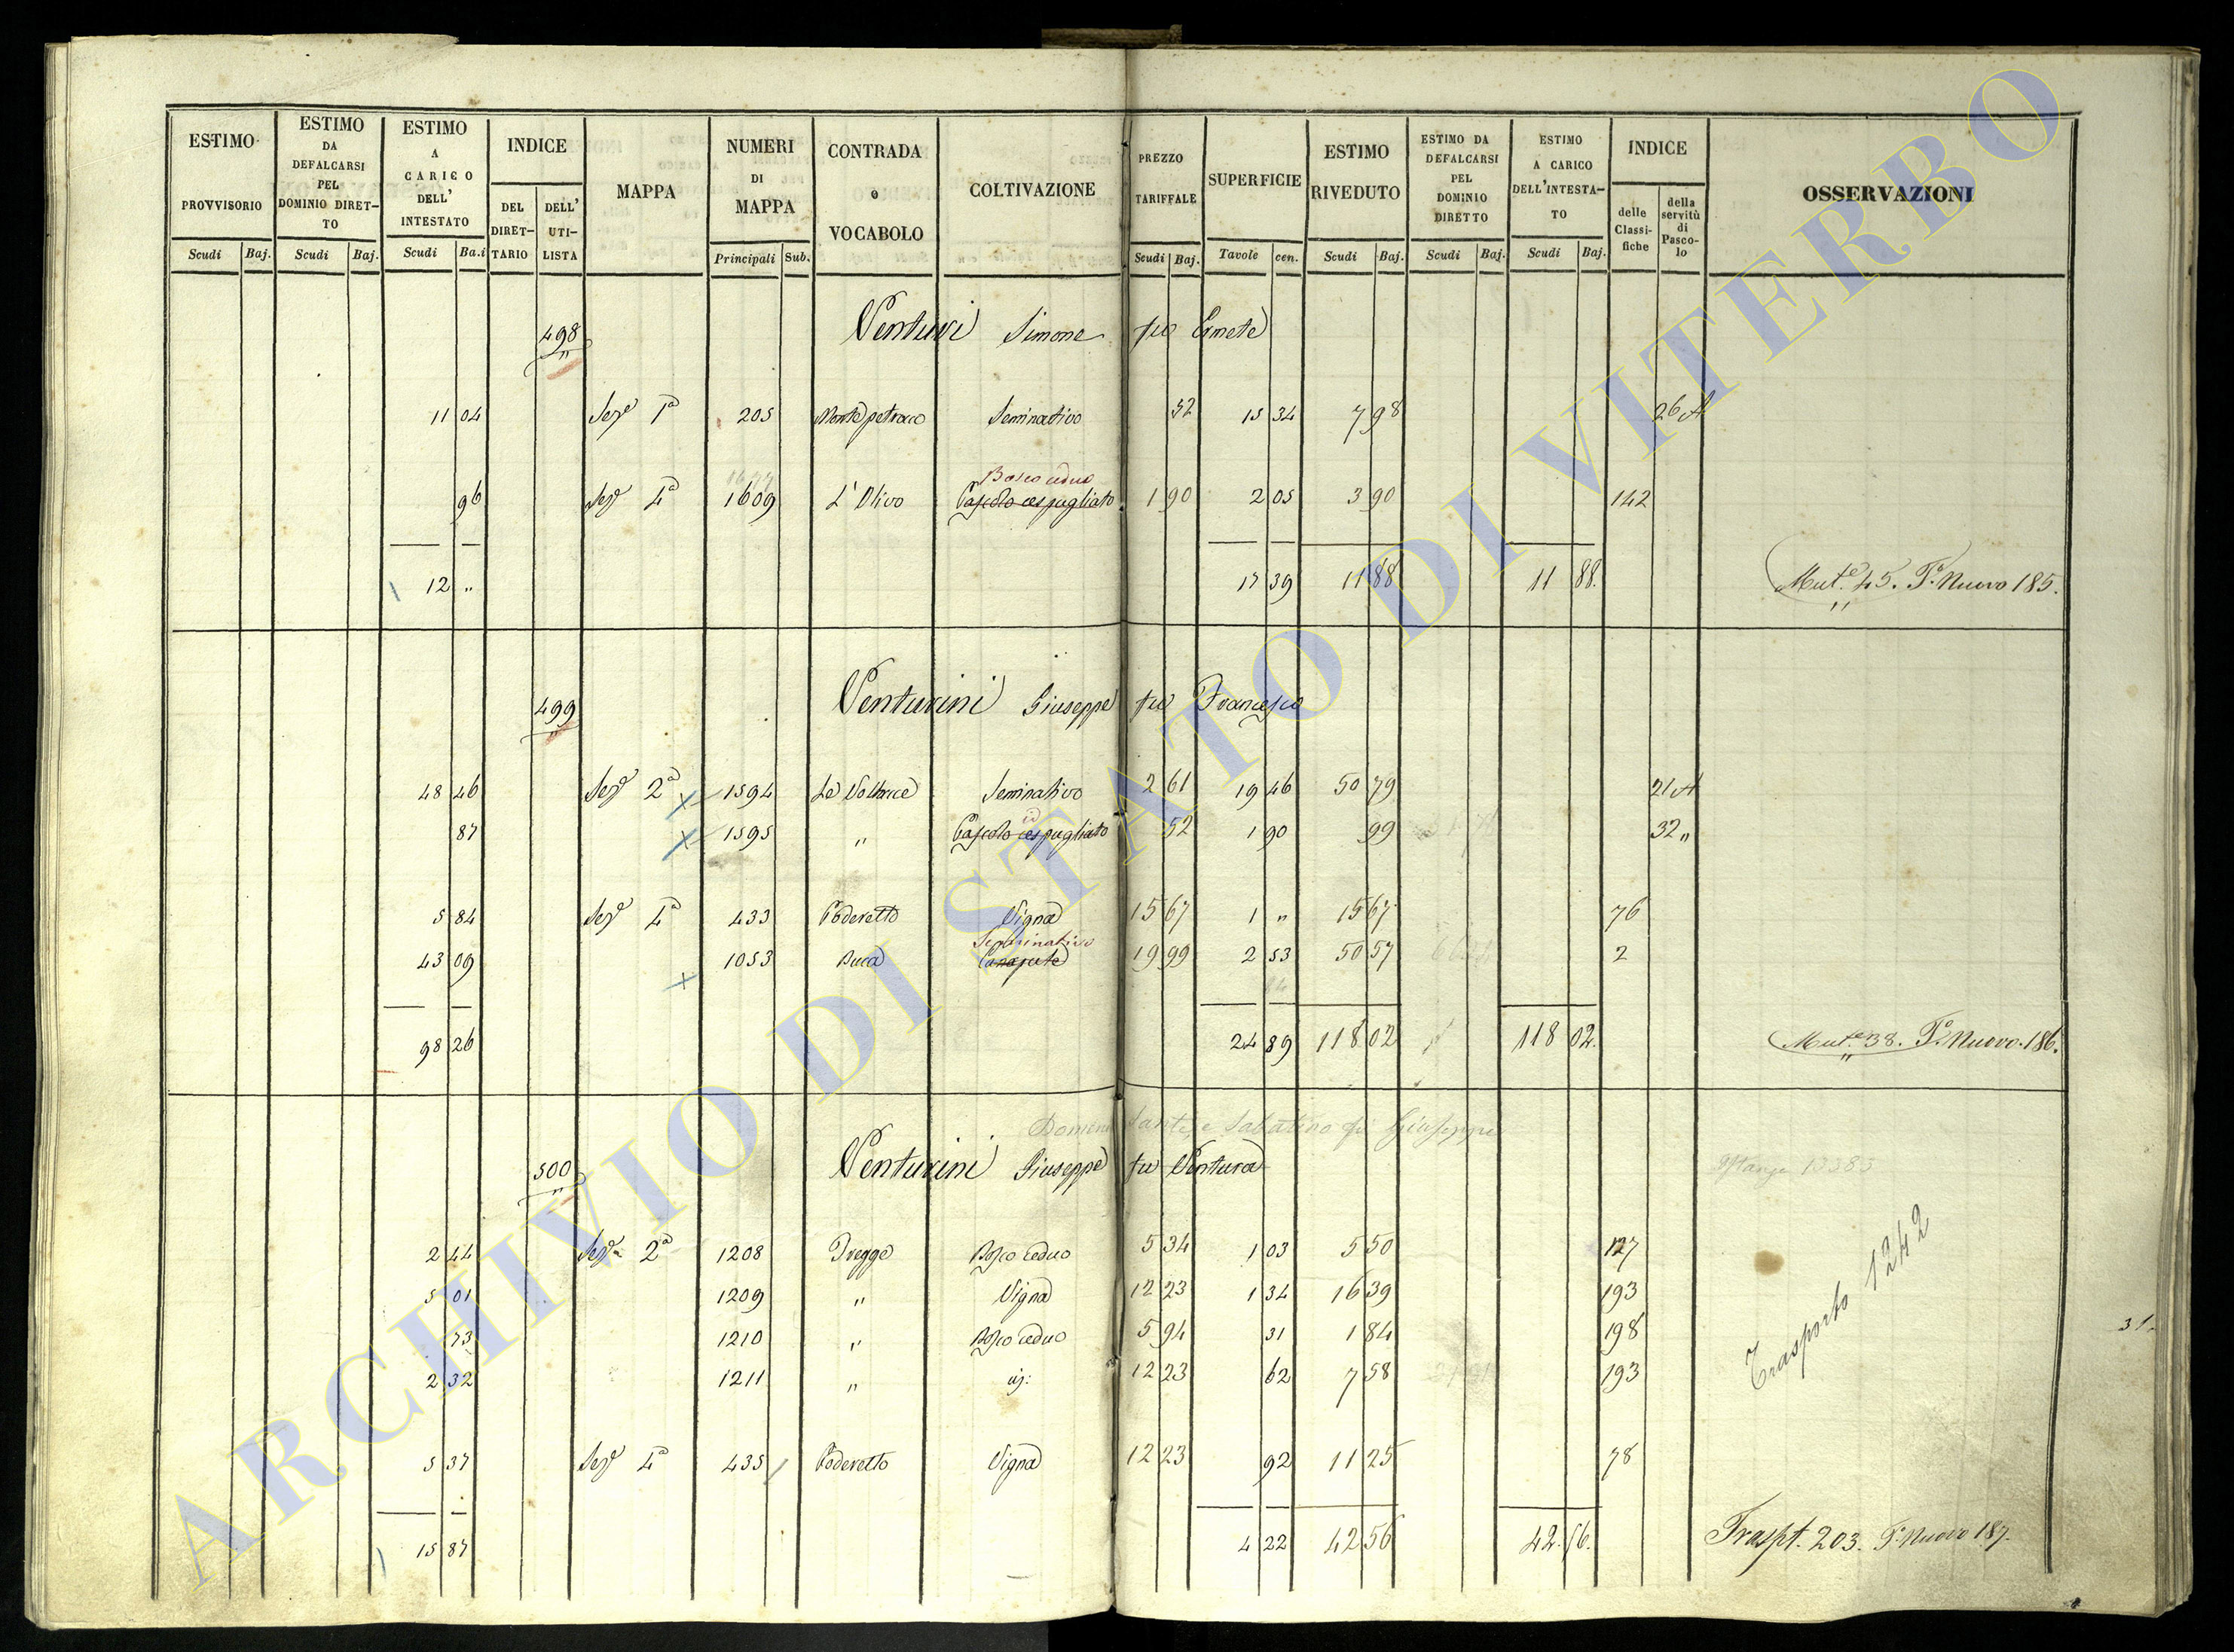 ESTIMO PROVVISORIO Scudi Baj. | ESTIMO DA DEFALCARSI PEL DOMINIO DIRET-TO Scudi Baj. | ESTIMO A CARICO DELL' INTESTATO Scudi Ba.i | INDICE DEL DIRET-TARIO DELL' UTI-LISTA | MAPPA | NUMERI DI MAPPA Principali Sub. | CONTRADA o VOCABOLO | COLTIVAZIONE | PREZZO TARIFFALE Scudi Baj. | SUPERFICIE Tavole cen. | ESTIMO RIVEDUTO Scudi Baj. | ESTIMO DA DEFALCARSI PEL DOMINIO DIRETTO Scudi Baj. | ESTIMO A CARICO DELL'INTESTA-TO Scudi Baj. | INDICE delle Classi-fiche della servitù di Pasco-lo | OSSERVAZIONI
498 Venturi Simone fu Ermete
11 04 Sez.e 1a 205 Montepetracco Seminativo 52 15 34 7 98 26 A
Bosco ceduo
96 Sez.e 4a 1609 L'Olivo Pascolo cespugliato 1 90 2 05 3 90 142
12 " 17 39 11 88 11 88. Mut.e 45. P.o Nuovo 185.
499 " Venturini Giuseppe fu Francesco
48 46 Sez.e 2a 1594 Seminativo 2 61 19 46 50 79 21 A
87 1595 " Pascolo cespugliato 52 1 90 99 32 "
5 84 Sez.e 4a 433 Poderetto Vigna 15 67 1 " 15 67 76
Seminativo
43 09 1053 Buca Canapule 19 99 2 53 50 57 2
98 26 24 89 118 02 118 02. Mut.e 38. P.o Nuovo. 186.
Sante, e Sabatino fu Giuseppe
500 " Venturini Giuseppe fu Ventura
2 44 Sez.e 2a 1208 Bosco ceduo 5 34 1 03 5 50 127
5 01 1209 " Vigna 12 23 1 34 16 39 193
Trasporto 1242
73 1210 " Bosco ceduo 5 94 31 1 84 198
31
2 32 1211 " 12 23 62 7 58 193
5 37 Sez.e 4a 435 Poderetto Vigna 12 23 92 11 25 78
15 87 4 22 42 56 42. 56. Traspt. 203. P.o Nuovo 187.
ARCHIVIO DI STATO DI VITERBO